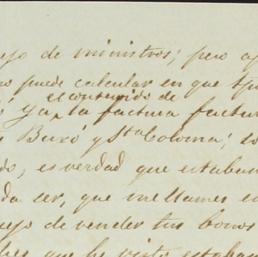 ejo de ministros; pero
puede calcular en que
el contenido de
ya la factura
Buró y Sta Coloma;
es verdad que estaban
da ser, que me llames
ejo de vender tus bonos
que he visto estaban